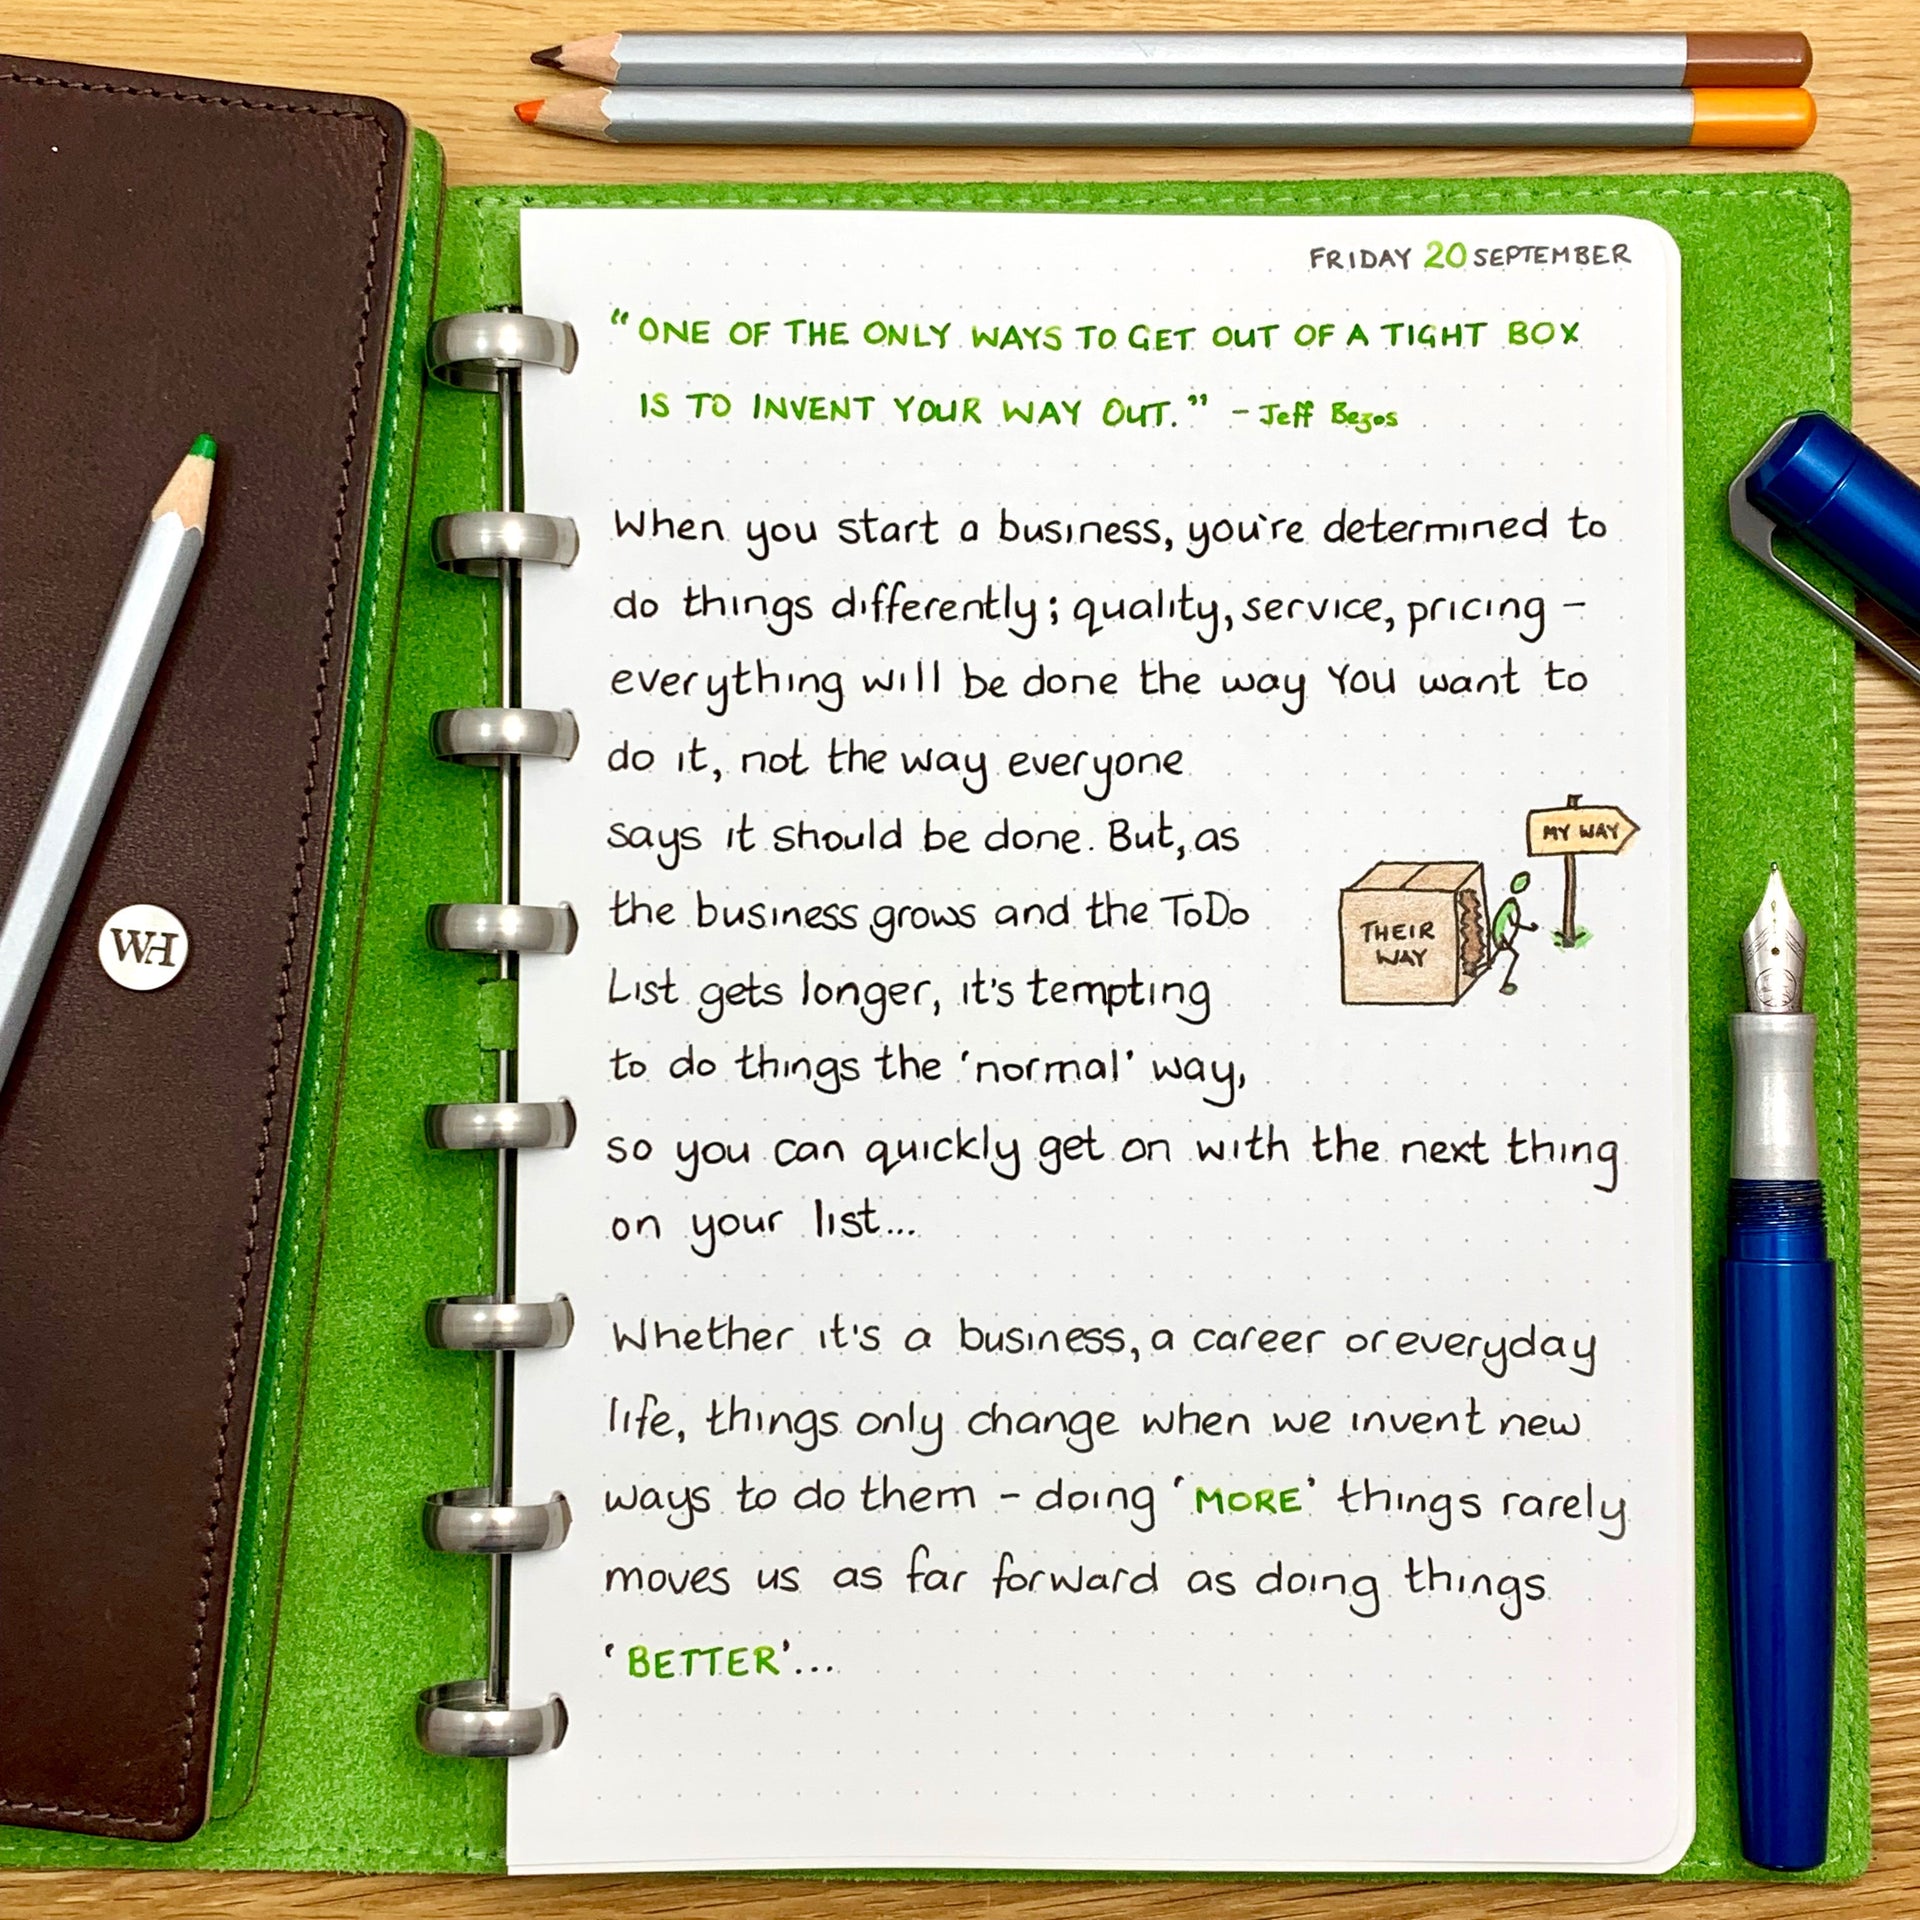 FRIDAY 20 SEPTEMBER
“ONE OF THE ONLY WAYS TO GET OUT OF A TIGHT BOX
IS TO INVENT YOUR WAY OUT.” - Jeff Bezos
When you start a business, you're determined to
do things differently; quality, service, pricing -
everything will be done the way YOU want to
do it, not the way everyone
says it should be done. But, as
the business grows and the ToDo
List gets longer, it's tempting
to do things the 'normal' way,
so you can quickly get on with the next thing
on your list...
MY WAY
THEIR
WAY
Whether it's a business, a career or everyday
life, things only change when we invent new
ways to do them - doing 'MORE' things rarely
moves us as far forward as doing things
'BETTER'...
WH